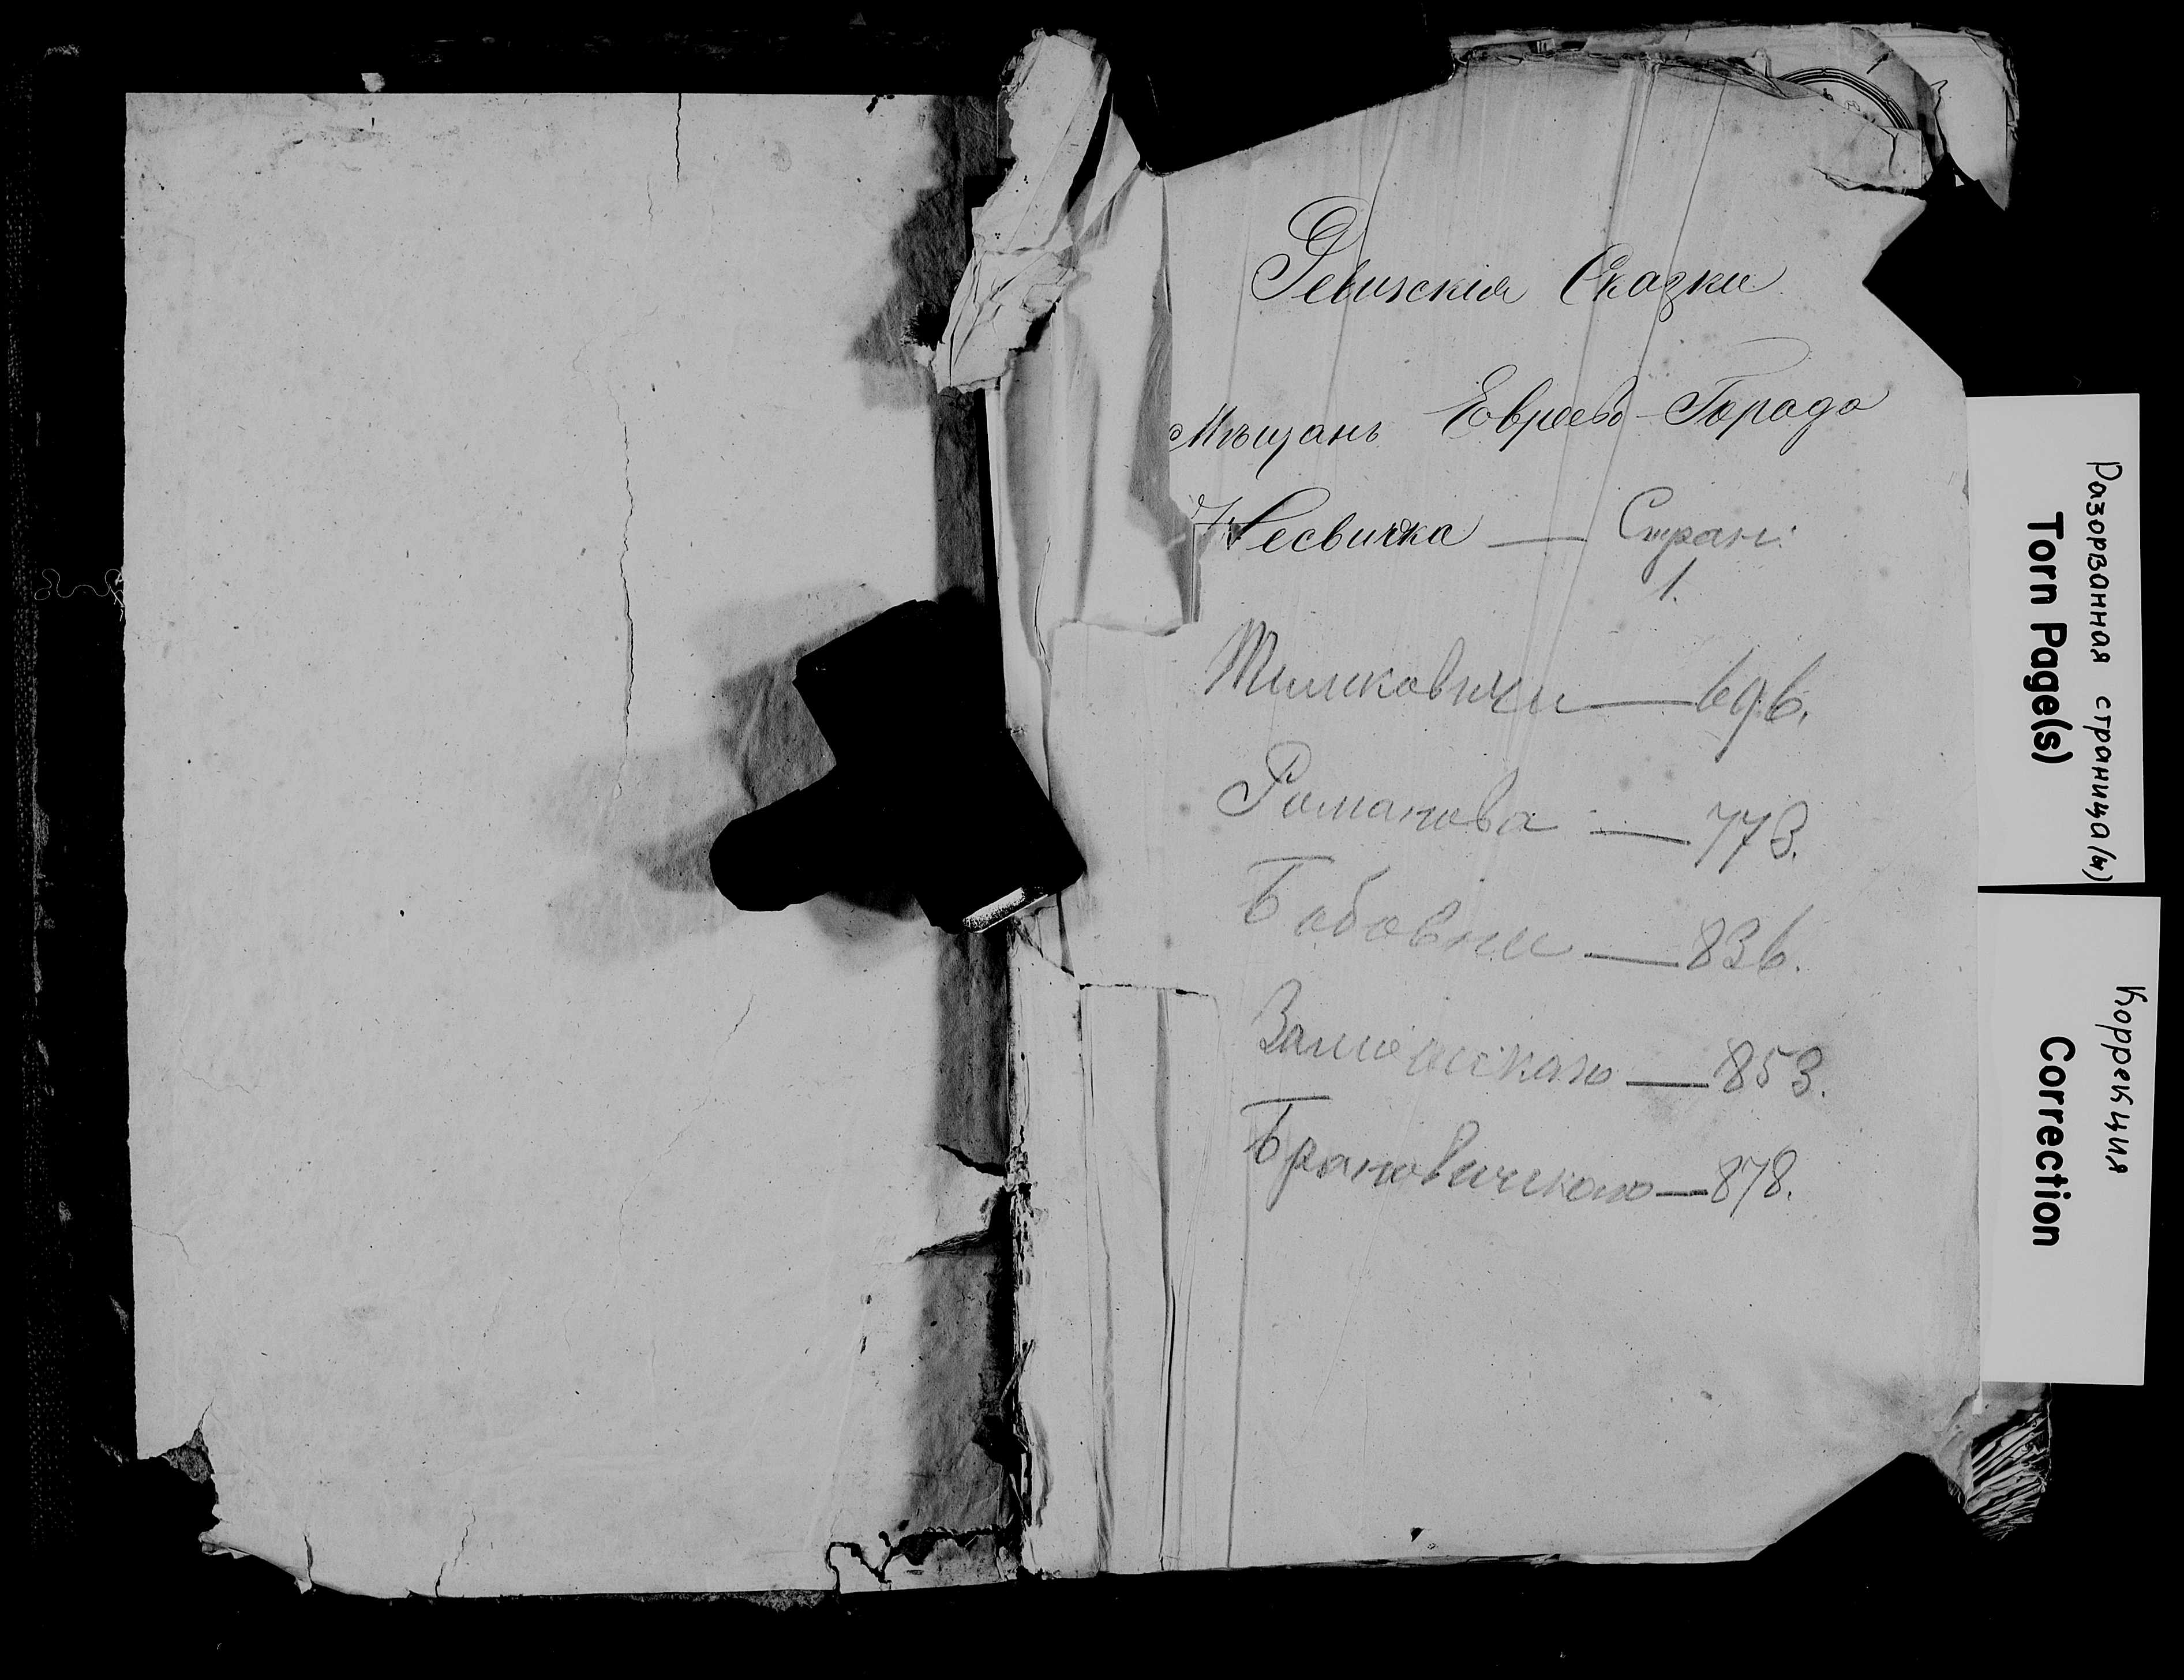 Ревизскія Сказки
Мѣщанъ Евреевъ Города
Несвижа — Стран:
1.
Тимковичи — 696.
Романова — 773.
Бобовни — 836.
853.
878.
Разорванная страница(ы)
Torn Page(s)
Коррекция
Correction